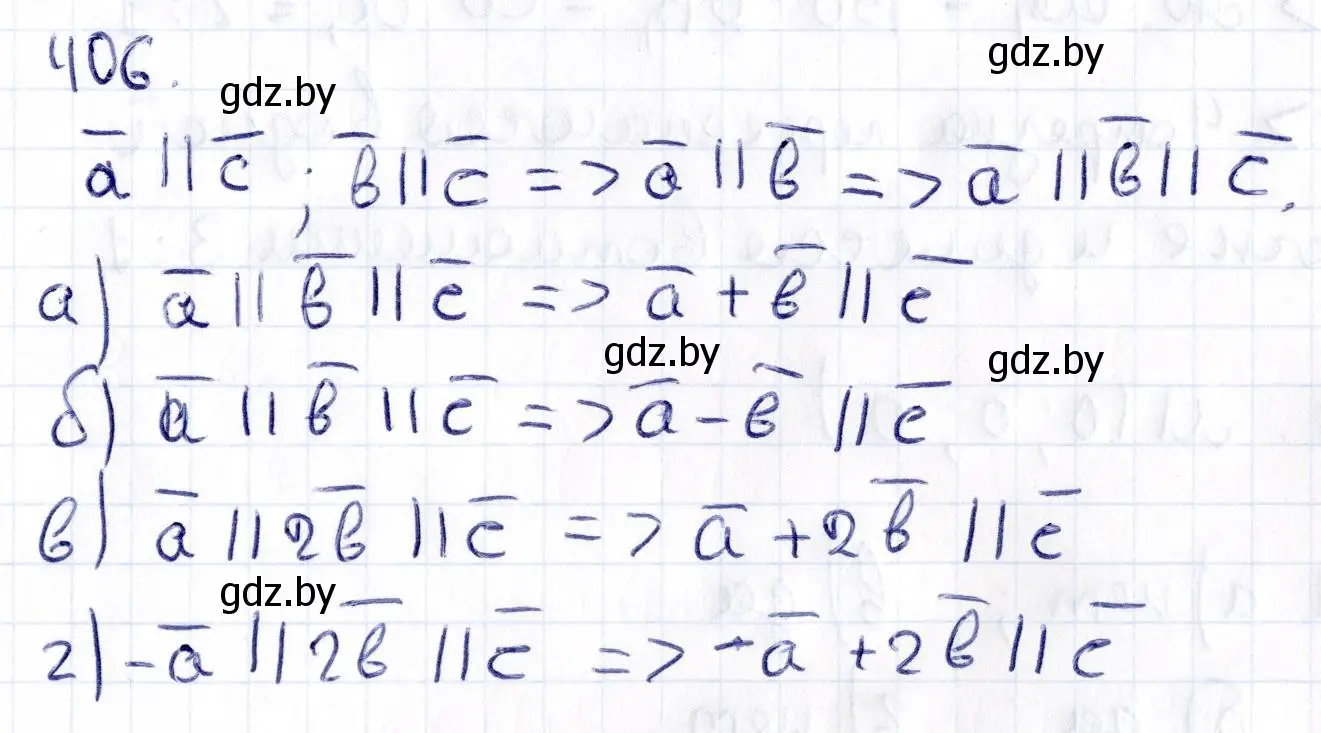 406.
gdz.by
gdz.by
a̅ || c̅ ; в̅ || c̅ => a̅ || в̅ => a̅ || в̅ || c̅.
а) a̅ || в̅ || c̅ => a̅ + в̅ || c̅
gdz.by
gdz.by
б) a̅ || в̅ || c̅ => a̅ - в̅ || c̅
в) a̅ || 2в̅ || c̅ => a̅ + 2в̅ || c̅
gdz.by
г) -a̅ || 2в̅ || c̅ => -a̅ + 2в̅ || c̅